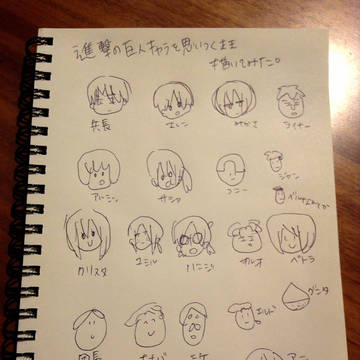 進撃の巨人キャラを思いつくまま
描いてみた。
兵長 エレン みかさ ライナー
アルミン サシャ コニー ジャン
べるとると
クリスタ ユミル ハンジ オルオ ペトラ
グンタ
団長 ナナバ ミケ エルド アニ